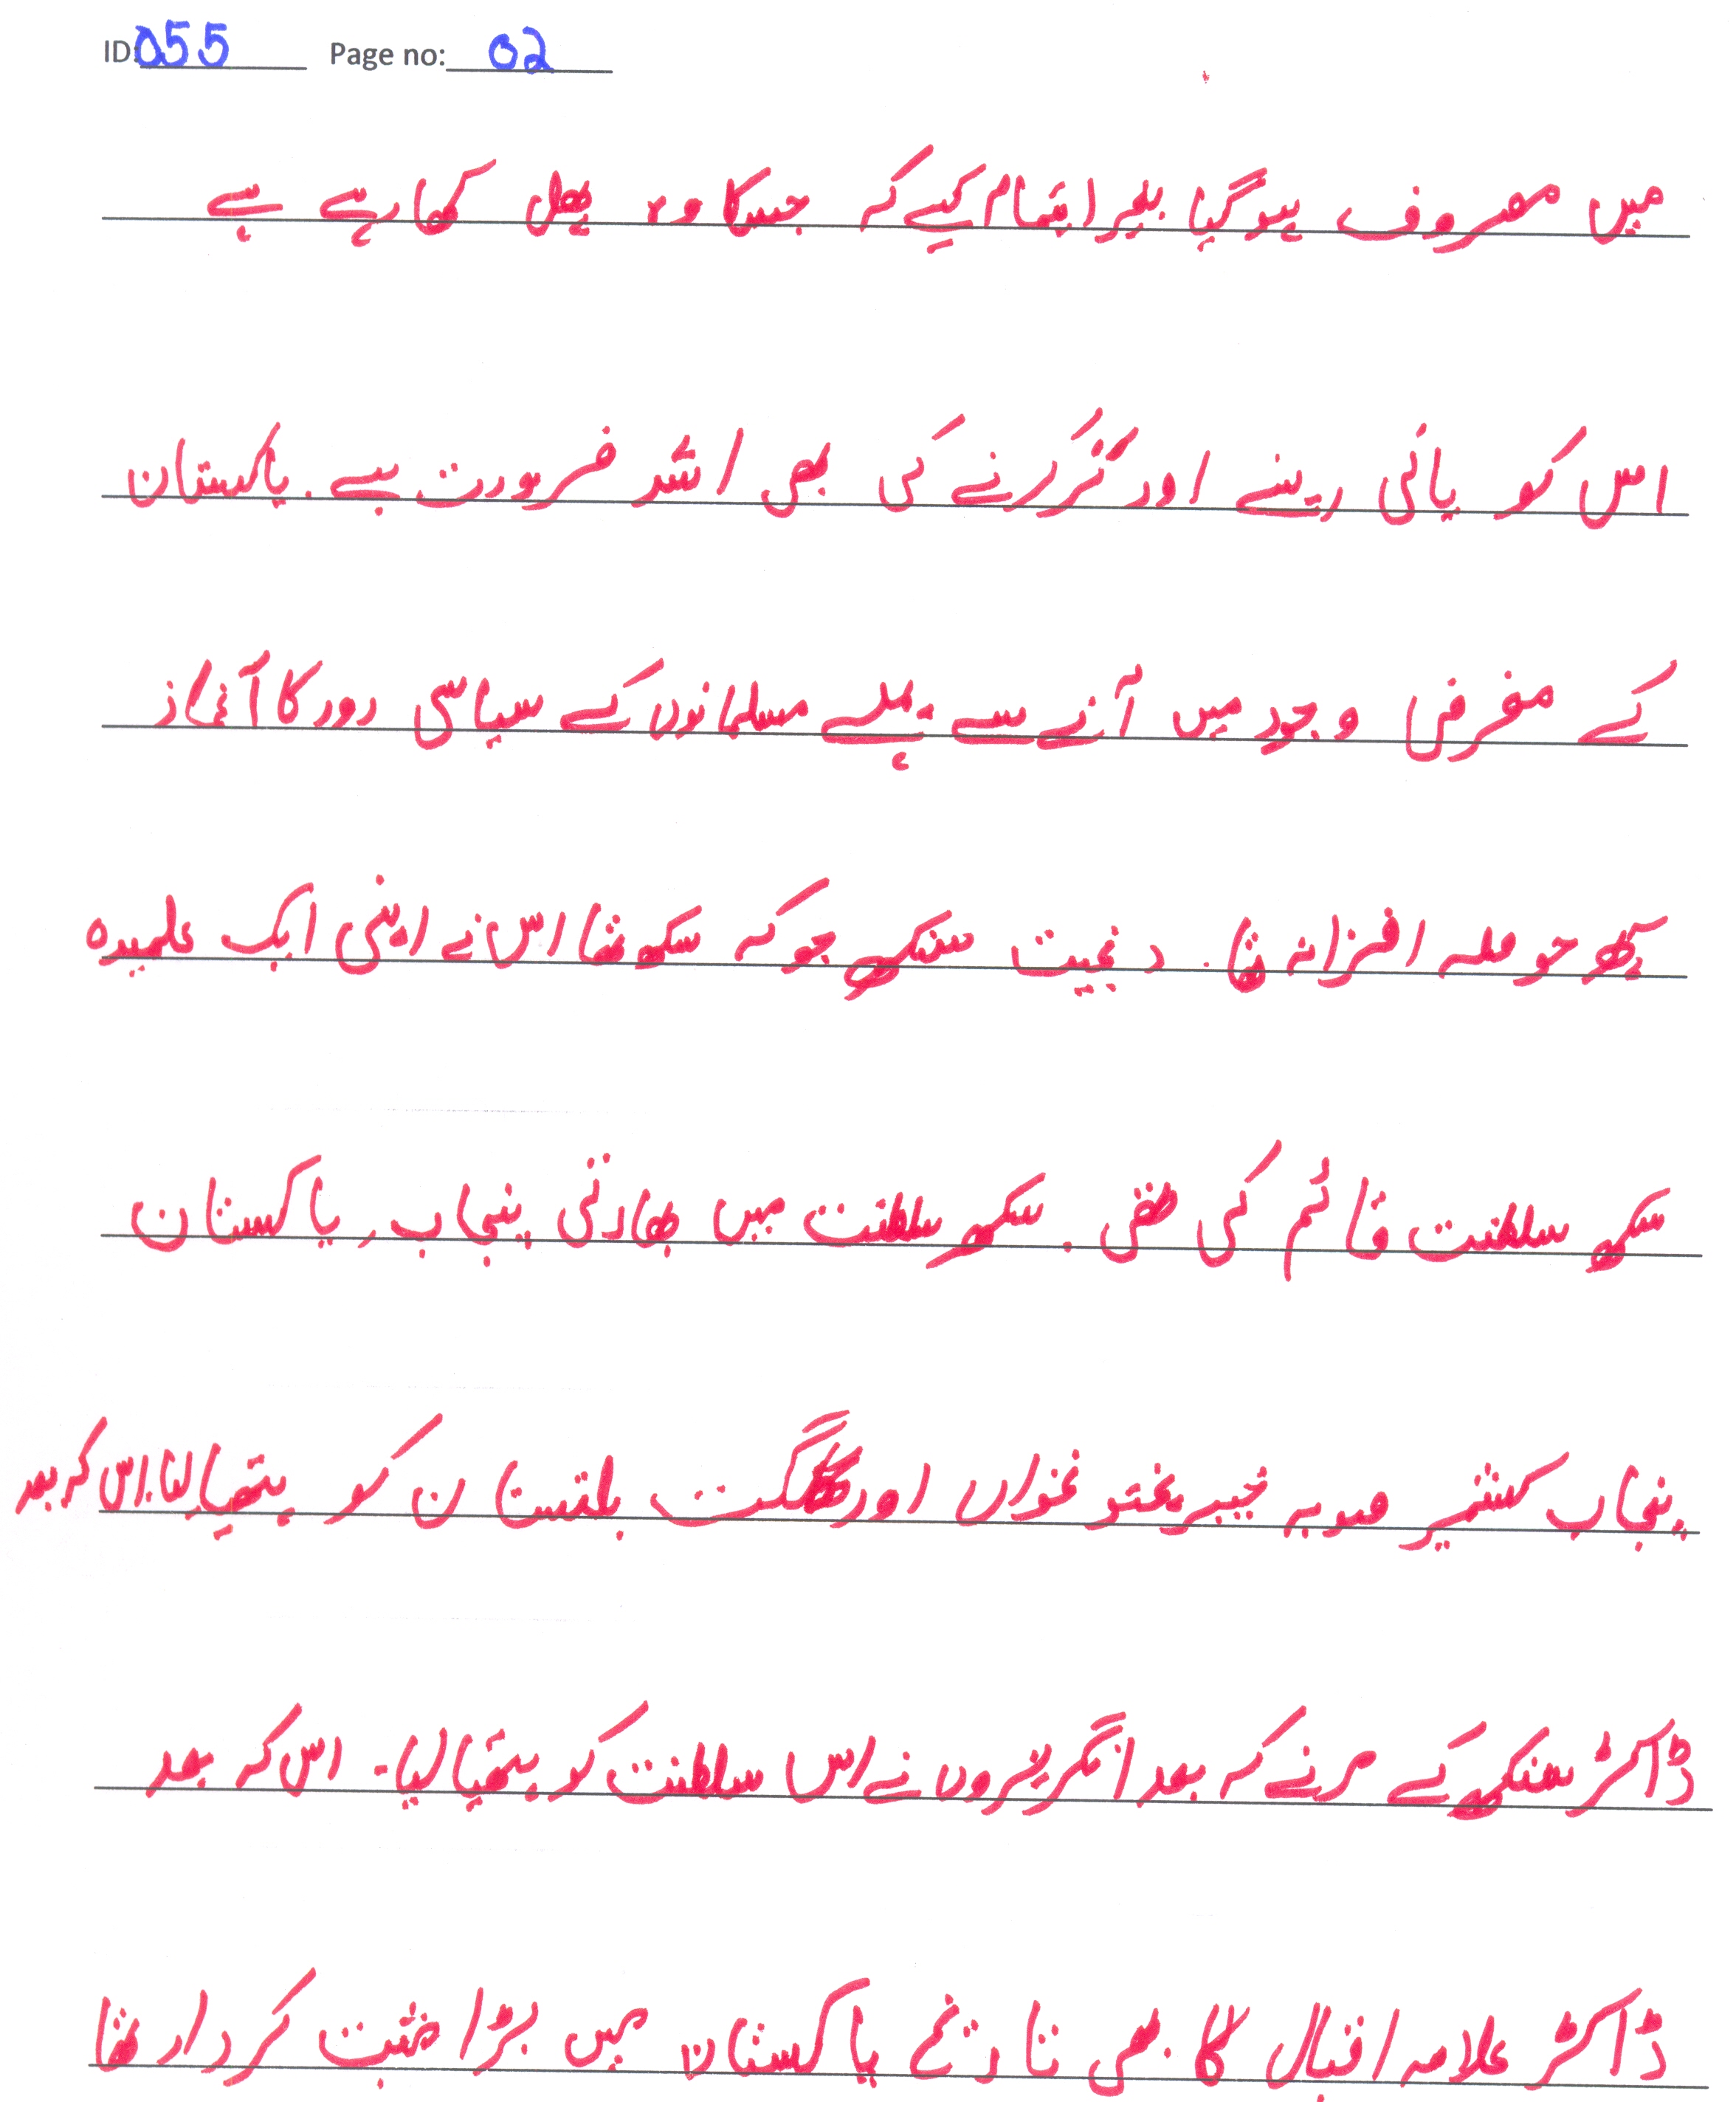 ID: 055 Page no: 02
میں مصروف ہوگیا بغیر اہتمام کیے کہ جسکا وہ پھل کھا رہے ہے
اس کو پانی دینے اور تر کرنے کی بھی اشد ضرورت ہے۔ پاکستان
کے معرض وجود میں آنے سے پہلے مسلمانوں کے سیاسی دور کا آغاز
کچھ حوصلہ افزانہ تھا۔ سنگھ جو کہ سکھ تھا اس نے اپنی ایک علحیدہ
سکھ سلطنت قائم کی تھی۔ سکھ سلطنت میں بھارتی پنجاب، پاکستان
پنجاب کشمیر صوبہ خیبر پختو نخواں اور گلگت بلتستان کو ہتھیا لیا۔ اس کہ بعد
ڈاکٹر سنگھ کے مرنے کہ بعد انگریزوں نے اس سلطنت کو ہتھیا لیا۔ اس کہ بعد
ڈاکٹر علامہ اقبال کا بھی تاریخ پاکستان میں بڑا مثبت کردار تھا